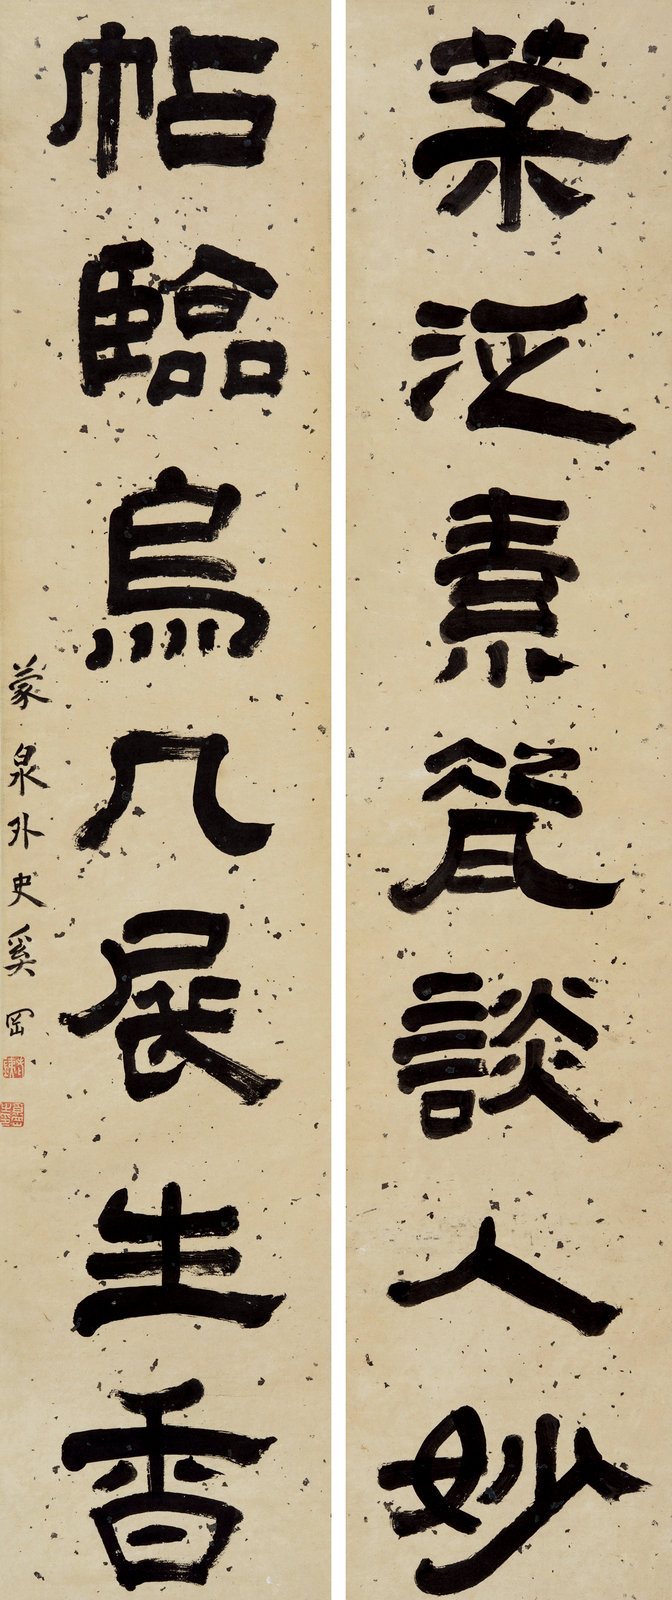 茶泛素瓷談入妙
帖臨烏几展生香
蒙泉外史奚岡